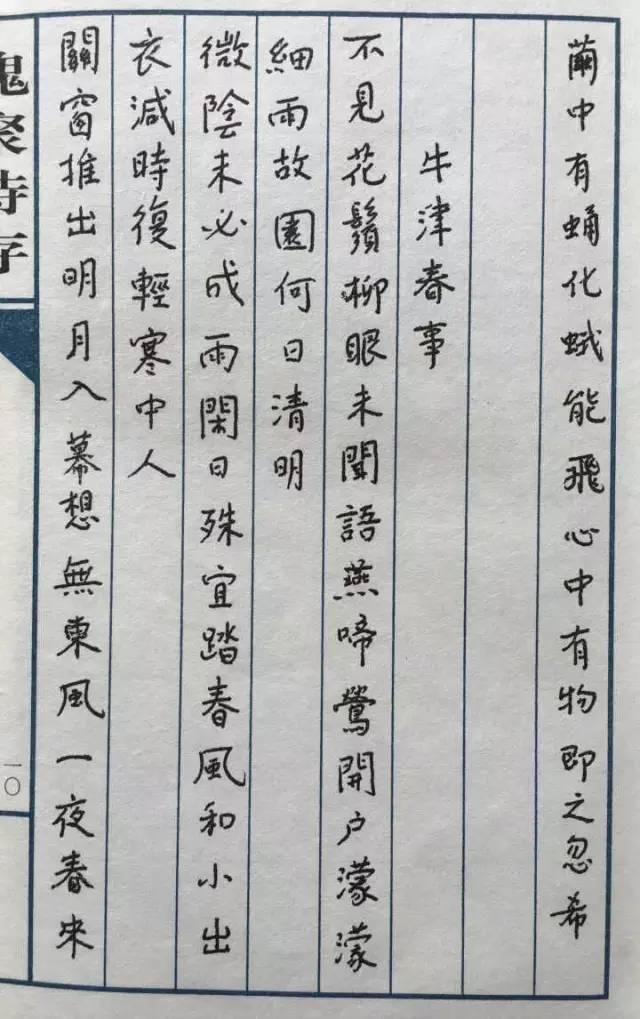 繭中有蛹化蛾能飛心中有物即之忽希
牛津春事
不見花鬚柳眼未聞語燕啼鶯開户濛濛
細雨故園何日清明
微陰未必成雨閑日殊宜踏春風和小出
衣減時復輕寒中人
關窗推出明月入幕想無東風一夜春來
槐聚詩存
一〇